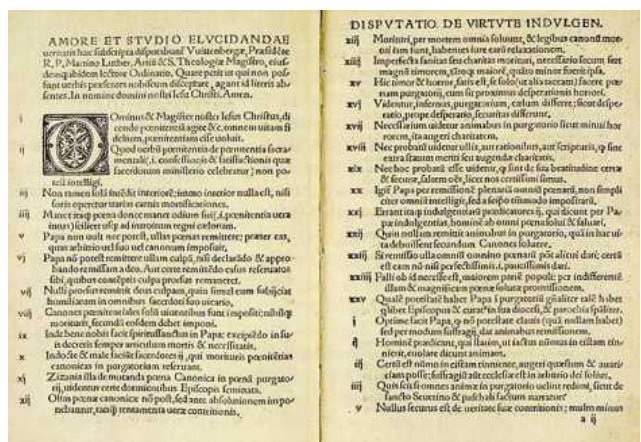 AMORE ET STVDIO ELVCIDANDAE
ueritatis hæc subscripta disputabunť Vuittenbergæ, Præsidẽte
R. P. Martino Luther, Artiũ & S. Theologiæ Magistro, eius-
demq; ibidem lectore Ordinario. Quare petit ut qui non pos-
sunt uerbis præsentes nobiscum disceptare, agant id literis ab-
sentes. In nomine domini nostri Iesu Christi. Amen.
i Ominus & Magister noster Iesus Christus, di-
cendo pœnitentiã agite &c. omnem uitam fi
delium, pœnitentiam esse uoluit.
ij Quod uerbũ pœnitentia de pœnitentia sacra
mentali (.i. confessionis & satisfactionis quæ
sacerdotum ministerio celebratur) non po-
test intelligi.
iij Non tamen solã intẽdit interiorẽ; immo interior nulla est, nisi
foris operetur uarias carnis mortificationes.
iiij Manet itaq; pœna donec manet odium sui (.i. pœnitentia uera
intus) scilicet usq; ad introitum regni cælorum.
v Papa non uult nec potest, ullas pœnas remittere; præter eas,
quas arbitrio uel suo uel canonum imposuit.
vj Papa nõ potest remittere ullam culpã, nisi declarãdo & appro-
bando remissam a deo. Aut certe remittẽdo casus reseruatos
sibi, quibus cõtẽptis culpa prorsus remaneret.
vij Nulli prorsus remittit deus culpam, quin simul eum subijciat
humiliatum in omnibus sacerdoti suo uicario.
viij Canones pœnitentiales solũ uiuentibus sunt impositi; nihilq;
morituris, secundũ eosdem debet imponi.
ix Inde bene nobis facit spiritussanctus in Papa; excipiẽdo in su-
is decretis semper articulum mortis & necessitatis.
x Indocte & male faciũt sacerdotes ij, qui morituris pœnitẽtias
canonicas in purgatorium reseruant.
xj Zizania illa de mutanda pœna Canonica in pœnã purgato-
rij, uidentur certe dormientibus Episcopis seminata.
xij Olim pœnæ canonicæ nõ post, sed ante absolutionem impo-
nebantur, tanq̃ tentamenta ueræ contritionis.
DISPVTATIO DE VIRTVTE INDVLGEN.
xiij Morituri, per mortem omnia soluunt, & legibus canonũ mor-
tui iam sunt, habentes iure earũ relaxationem.
xiiij Imperfecta sanitas seu charitas morituri, necessario secum fert
magnũ timorem, tãtoq; maiorẽ, quãto minor fuerit ipsa.
xv Hic timor & horror, satis est, se solo (ut alia taceam) facere pœ-
nam purgatorij, cum sit proximus desperationis horrori.
xvj Videntur, infernus, purgatorium, cælum differre; sicut despe-
ratio, prope desperatio, securitas differunt.
xvij Necessarium uidetur animabus in purgatorio sicut minui hor-
rorem, ita augeri charitatem.
xviij Nec probatũ uidetur ullis, aut rationibus, aut scripturis, q sint
extra statum meriti seu augendæ charitatis.
xix Nec hoc probatũ esse uidetur, q sint de sua beatitudine certæ
& securæ, saltem oẽs, licet nos certissimi simus.
xx Igiť Papa per remissionẽ plenariã omniũ pœnarũ, non simpli
citer omniũ intelligit, sed a seipso tãtummodo impositarũ.
xxj Errant itaq; indulgentiarũ prædicatores ij, qui dicunt per Pa-
pæ indulgentias, hominẽ ab omni pœna solui & saluari.
xxij Quin nullam remittit animabus in purgatorio, quã in hac ui-
ta debuissent secundum Canones soluere.
xxiij Si remissio ulla omniũ omnino pœnarũ põt alicui dari; certũ
est eam nõ nisi perfectissimis .i. paucissimis dari.
xxiiij Falli ob id necesse est, maiorem partẽ populi; per indifferentẽ
illam & magnificam pœnæ solutæ promissionem.
xxv Qualẽ potestatẽ habet Papa ĩ purgatoriũ gñaliter talẽ habet
q̃libet Episcopus & curatᵍ in sua diocesi, & parochia spãliter.
i Optime facit Papa, q nõ potestate clauis (quã nullam habet)
sed per modum suffragij, dat animabus remissionem.
ij Hominẽ prædicant, qui statim, ut iactus nũmus in cistam tin-
nierit, euolare dicunt animam.
iij Certũ est nũmo in cistam tinniente, augeri quæstum & auari-
ciam posse; suffragiũ aũt ecclesiæ est in arbitrio dei solius.
iiij Quis scit si omnes animæ in purgatorio uelint redimi, sicut de
sancto Seuerino & paschali factum narratur.
v Nullus securus est de ueritate suæ contritionis; multo minus
a ij